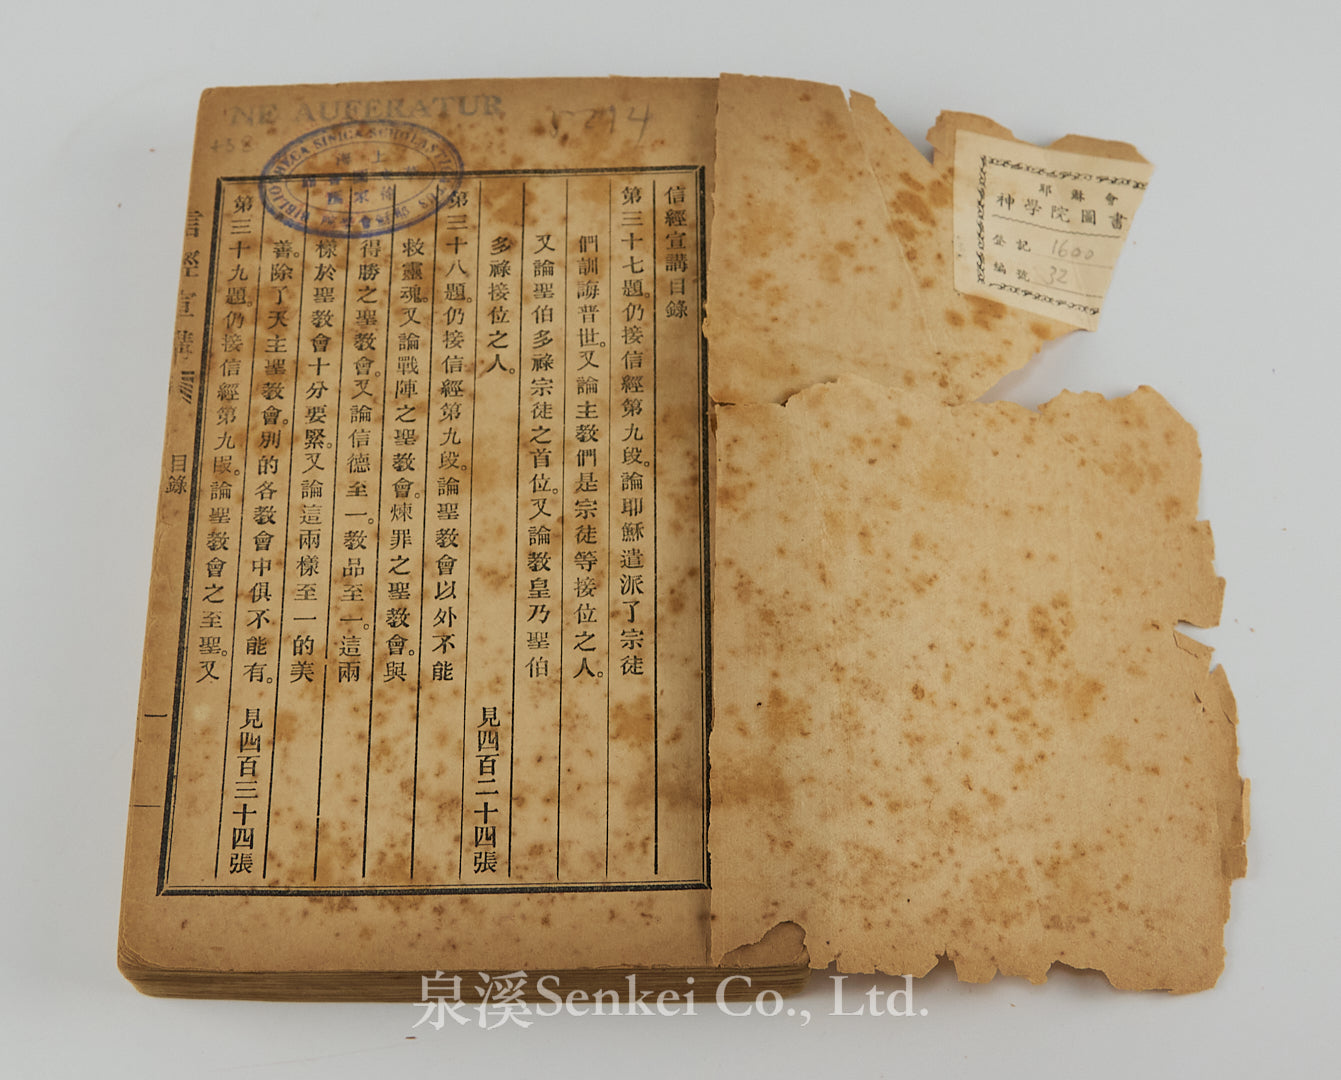 NE AUFERATUR
5294
438
BIBLIOTHECA SINICA SCHOLASTICORUM
上海
信經宣講目錄
第三十七題。仍接信經第九段。論耶穌遣派了宗徒
們訓誨普世。又論主教們是宗徒等接位之人。
又論聖伯多祿宗徒之首位。又論教皇乃聖伯
多祿接位之人。
見四百二十四張
第三十八題。仍接信經第九段。論聖教會以外不能
救靈魂。又論戰陣之聖教會。煉罪之聖教會。與
得勝之聖教會。又論信德至一。教品至一。這兩
樣於聖教會十分要緊。又論這兩樣至一的美
善。除了天主聖教會。別的各教會中俱不能有。
見四百三十四張
第三十九題。仍接信經第九段。論聖教會之至聖。又
信經宣講
目錄
一
耶穌會
神學院圖書
登記 1600
編號 32
泉溪Senkei Co., Ltd.